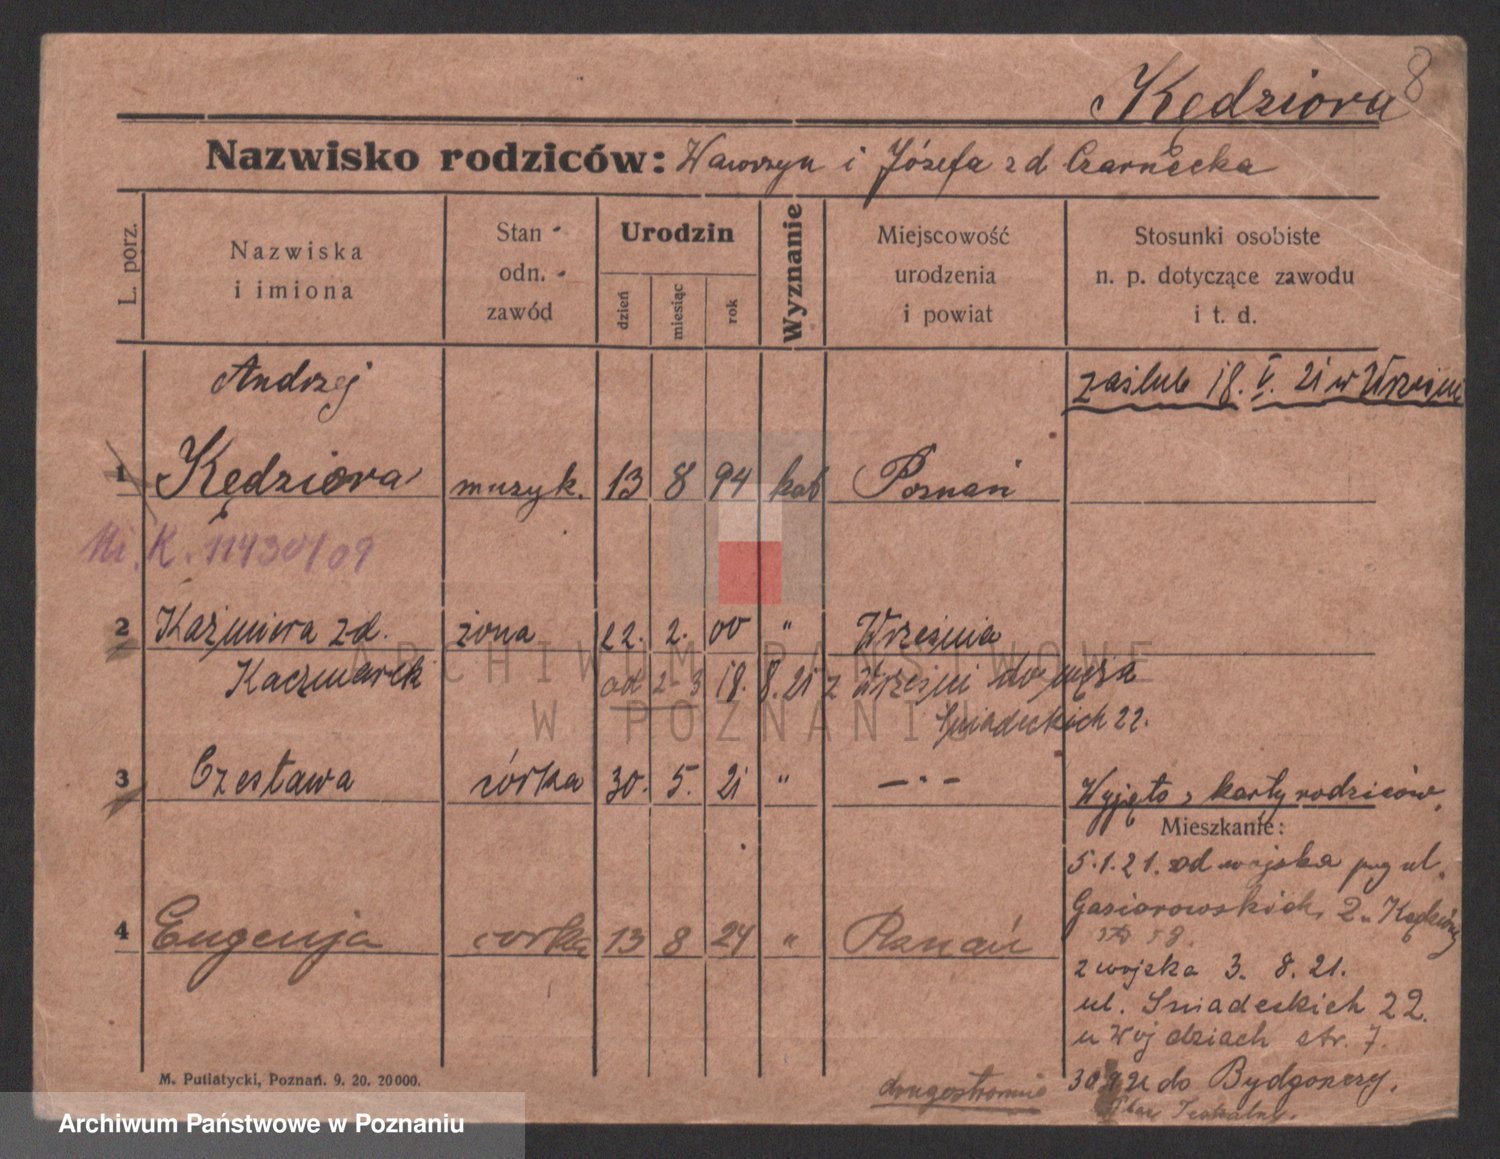 8
Kędziora
Nazwisko rodziców: Wawrzyn i Józefa z d Czarnecka
L. porz.
Nazwiska i imiona
Stan odn. zawód
Urodzin
dzień
miesiąc
rok
Wyznanie
Miejscowość urodzenia i powiat
Stosunki osobiste n. p. dotyczące zawodu i t. d.
Andrzej
zaślub 18. V. 21 w Wrześni
1 Kędziora muzyk. 13 8 94 kat Poznań
K. 11430/09
2 Kaźmiera z d. żona 22. 2. 00 " Września
Kaczmarek od 2-3 18. 8. 21 z Wrześni do męża
Śniadeckich 22.
3 Czesława córka 30. 5. 21 " — " —
Wyjęto z karty rodziców
Mieszkanie:
5.1.21. od wojska ul.
Gąsiorowskich 2 u Kędziory
4 Eugenja córka 13 8 24 " Poznań
z wojska 3. 8. 21.
ul. Śniadeckich 22.
u Wojdziach str. 7.
do Bydgoszczy.
drugostronnie
M. Putiatycki, Poznań. 9. 20. 20000.
ARCHIWUM PAŃSTWOWE
W POZNANIU
Archiwum Państwowe w Poznaniu